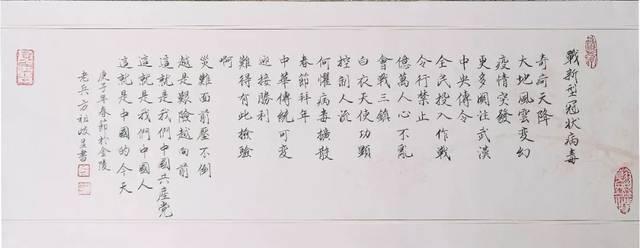 戰新型冠狀病毒
奇 天降
大地風雲變幻
疫情突發
更多關注武漢
中央傳令
全民投入作戰
令行禁止
億萬人心不亂
會戰三鎮
白衣天使功顯
控制人流
何懼病毒擴散
春節拜年
中華傳統可變
迎接勝利
難得有此檢驗
啊
災難面前壓不倒
越是艱險越向前
這就是我們中國共產黨
這就是我們中國人
這就是中國的今天
庚子年春節於金陵
老兵方祖岐 書